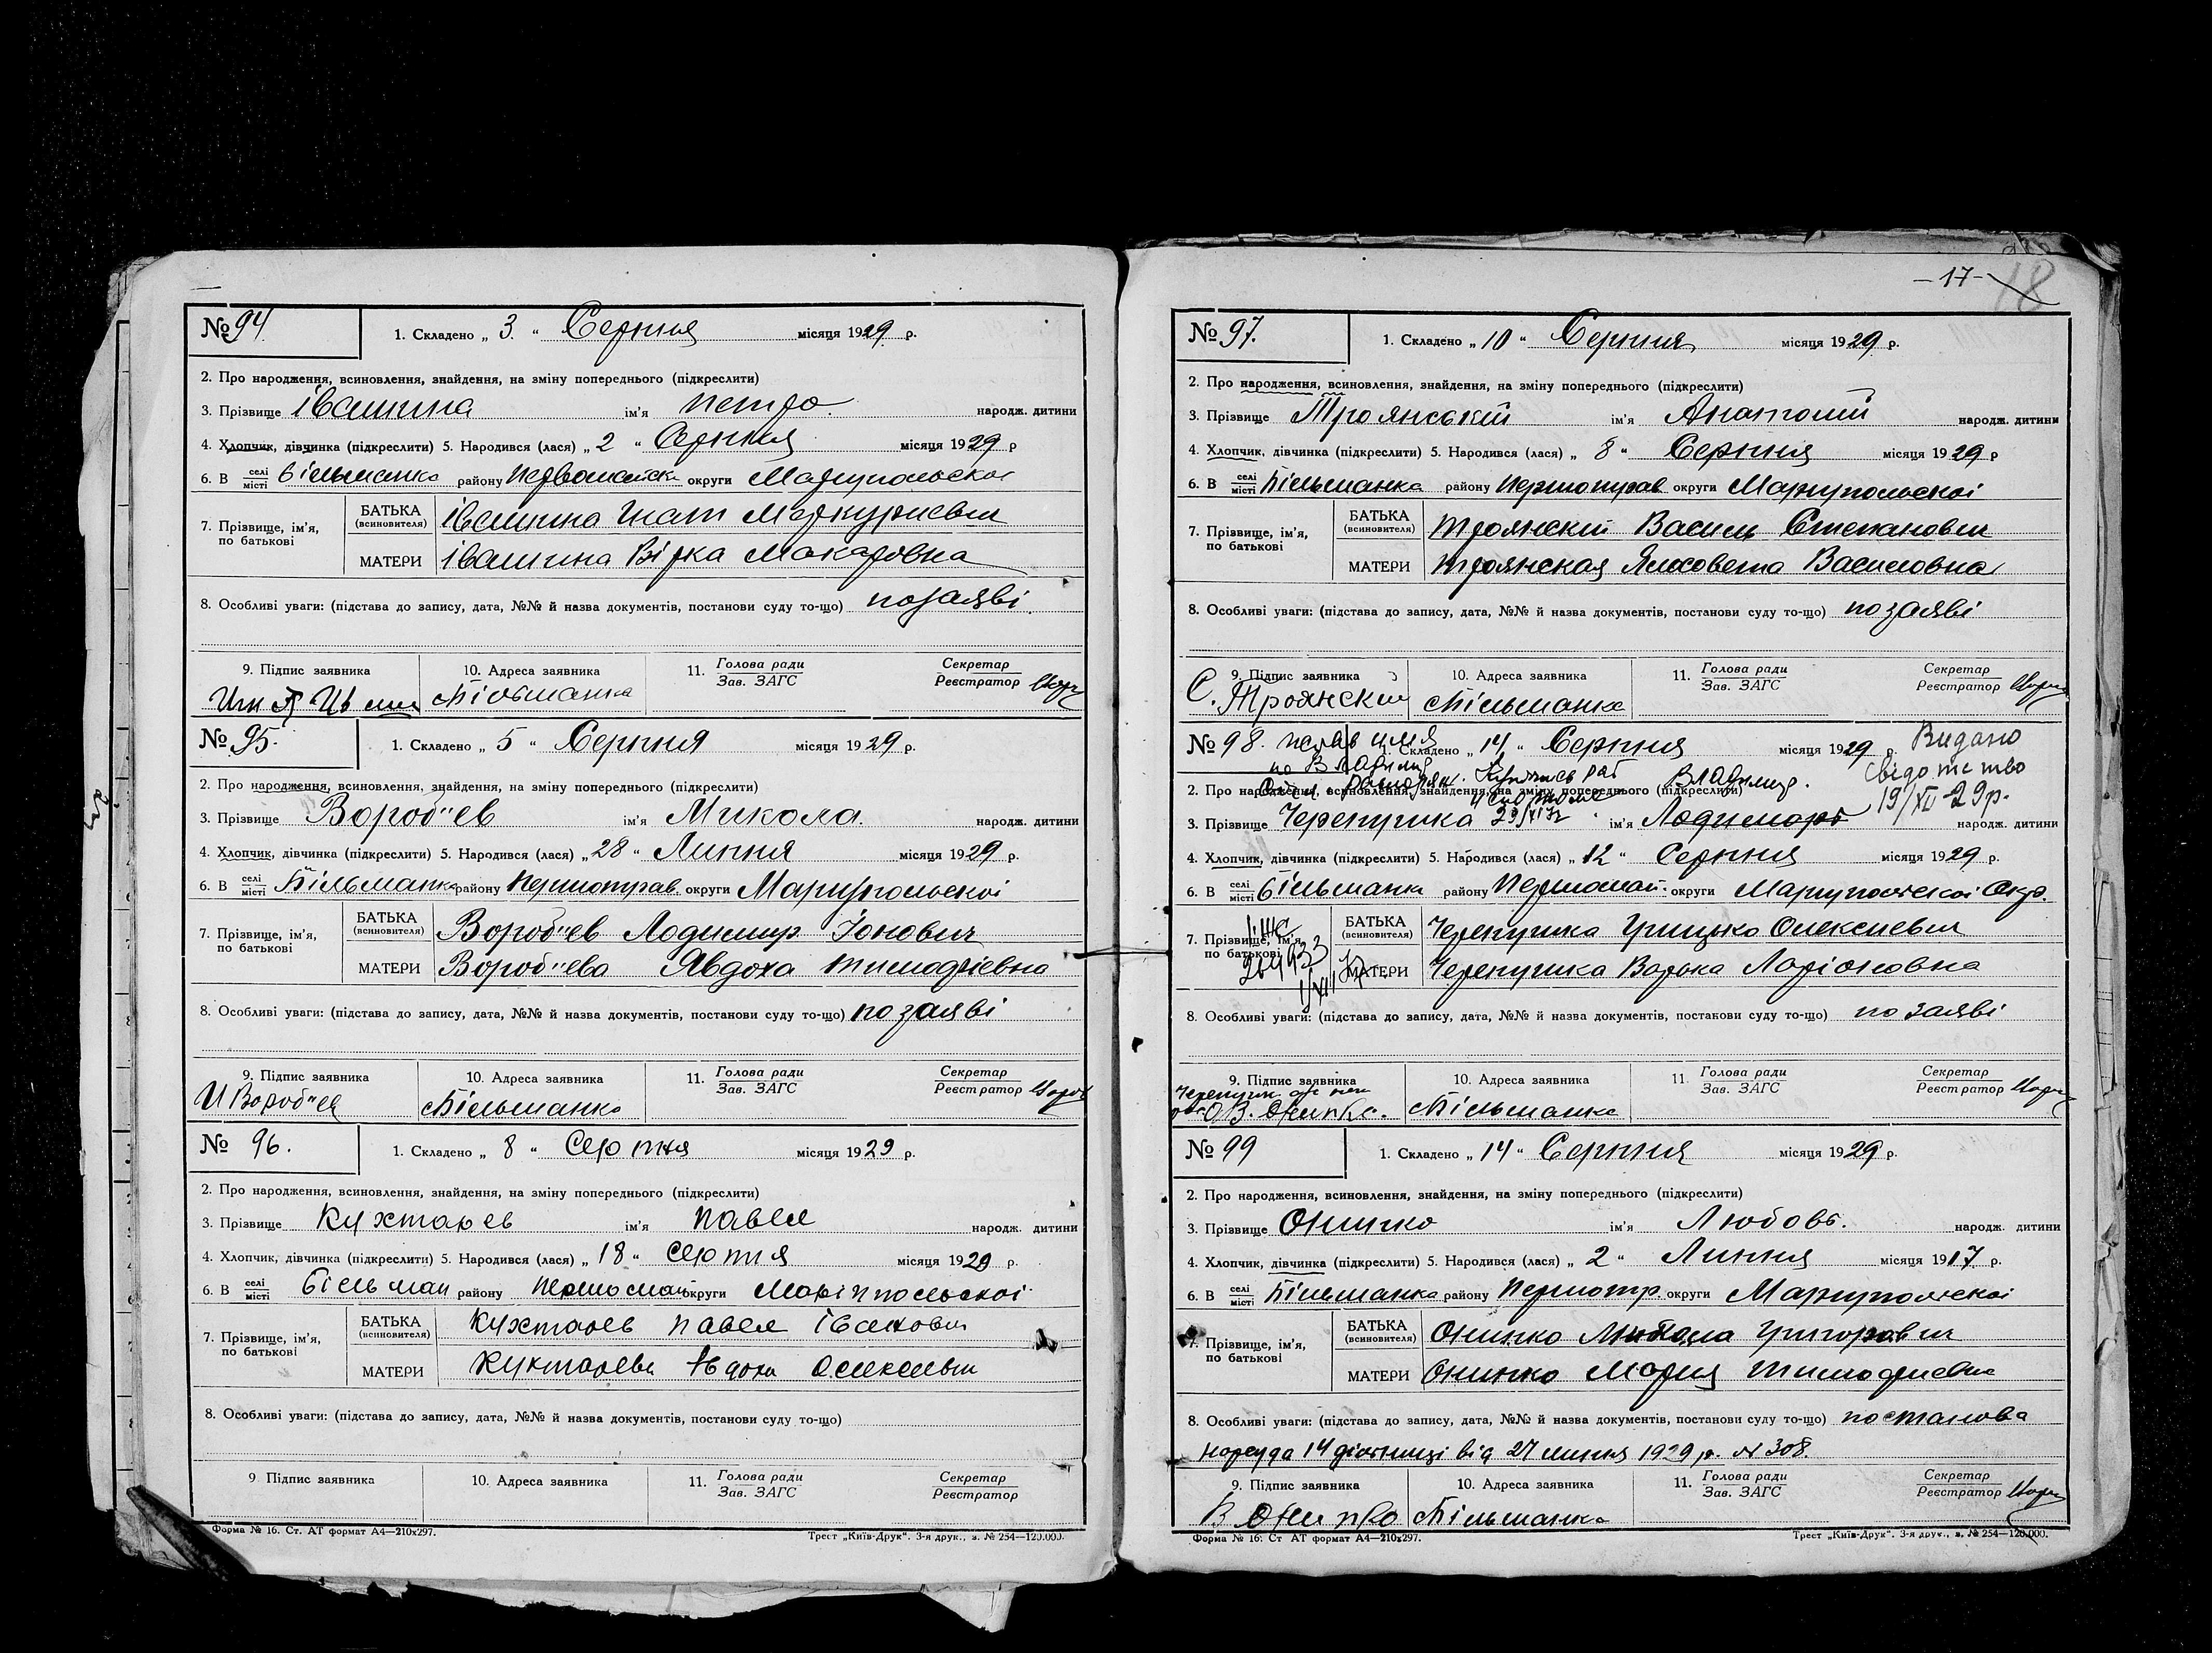 № 94. 1. Складено „ 3. “ Серпня місяця 1929 р.
2. Про народження, всиновлення, знайдення, на зміну попереднього (підкреслити)
3. Прізвище Івашина ім'я Петро. народж. дитини
4. Хлопчик, дівчинка (підкреслити) 5. Народився (лася) „ 2 “ Серпня місяця 1929 р
6. В селі місті Більманка району Первомайск округи Маріупольскої
7. Прізвище, ім'я, по батькові
БАТЬКА (всиновителя) Івашина Гнат Меркуриевич
МАТЕРИ Івашина Вірка Макаровна
8. Особливі уваги: (підстава до запису, дата, №№ й назва документів, постанови суду то-що) по заяві.
9. Підпис заявника 10. Адреса заявника 11. Голова ради Зав. ЗАГС Секретар Реєстратор
Більманка
№ 95. 1. Складено „ 5 “ Серпня місяця 1929 р.
2. Про народження, всиновлення, знайдення, на зміну попереднього (підкреслити)
3. Прізвище Вороб"ев ім'я Микола. народж. дитини
4. Хлопчик, дівчинка (підкреслити) 5. Народився (лася) „ 28 “ Липня місяця 1929 р.
6. В селі місті Більманка району Першотрав округи Маріупольскої
7. Прізвище, ім'я, по батькові
БАТЬКА (всиновителя) Вороб"ев Лодимир Іонович
МАТЕРИ Вороб"ева Явдоха Тимофіевна
8. Особливі уваги: (підстава до запису, дата, №№ й назва документів, постанови суду то-що) по заяві
9. Підпис заявника 10. Адреса заявника 11. Голова ради Зав. ЗАГС Секретар Реєстратор
И Вороб"ев Більманка
№ 96. 1. Складено „ 8 “ Серпня місяця 1929 р.
2. Про народження, всиновлення, знайдення, на зміну попереднього (підкреслити)
3. Прізвище Кухтарев ім'я Павел народж. дитини
4. Хлопчик, дівчинка (підкреслити) 5. Народився (лася) „ 18 “ Серпня місяця 1929 р.
6. В селі місті Більман району Першомай округи Маріппольскої
7. Прізвище, ім'я, по батькові
БАТЬКА (всиновителя) Кухтарев Павел Іванович
МАТЕРИ Кухтарева Евдоки
8. Особливі уваги: (підстава до запису, дата, №№ й назва документів, постанови суду то-що)
9. Підпис заявника 10. Адреса заявника 11. Голова ради Зав. ЗАГС Секретар Реєстратор
Форма № 16. Ст. АТ формат А4—210х297. Трест „Київ-Друк“. 3-я друк., з. № 254—120.000.
– 17 – 18
№ 97. 1. Складено „ 10 “ Серпня місяця 1929 р.
2. Про народження, всиновлення, знайдення, на зміну попереднього (підкреслити)
3. Прізвище Троянський ім'я Анатолій народж. дитини
4. Хлопчик, дівчинка (підкреслити) 5. Народився (лася) „ 8 “ Серпня місяця 1929 р
6. В селі місті Більманка району Першотрав округи Маріупольскої
7. Прізвище, ім'я, по батькові
БАТЬКА (всиновителя) Троянский Василь Степанович
МАТЕРИ Троянская Ялисовета Василовна
8. Особливі уваги: (підстава до запису, дата, №№ й назва документів, постанови суду то-що) по заяві
9. Підпис заявника 10. Адреса заявника 11. Голова ради Зав. ЗАГС Секретар Реєстратор
С. Троянский Більманка
№ 98. 1. Складено „ 14 “ Серпня місяця 1929 р. Видано
Владимир. свідотство
2. Про народження, всиновлення, знайдення, на зміну попереднього (підкреслити) 19/XII-29р.
3. Прізвище Черепушка ім'я народж. дитини
4. Хлопчик, дівчинка (підкреслити) 5. Народився (лася) „ 12 “ Серпня місяця 1929 р.
6. В селі місті Більманка району Першомай. округи Маріупольскої Окр.
7. Прізвище, ім'я, по батькові
БАТЬКА (всиновителя) Черепушка Грицько Олексиевич
МАТЕРИ Черепушка Варька Ларіоновна
8. Особливі уваги: (підстава до запису, дата, №№ й назва документів, постанови суду то-що) по заяві
9. Підпис заявника 10. Адреса заявника 11. Голова ради Зав. ЗАГС Секретар Реєстратор
Більманка
№ 99 1. Складено „ 14 “ Серпня місяця 1929 р.
2. Про народження, всиновлення, знайдення, на зміну попереднього (підкреслити)
3. Прізвище Онипко ім'я Любовь. народж. дитини
4. Хлопчик, дівчинка (підкреслити) 5. Народився (лася) „ 2 “ Липня місяця 1917 р.
6. В селі місті Більманка району Першотр. округи Маріупольскої
7. Прізвище, ім'я, по батькові
БАТЬКА (всиновителя) Онипко Микола Григорович
МАТЕРИ Онипко Мария Тимофиевна
8. Особливі уваги: (підстава до запису, дата, №№ й назва документів, постанови суду то-що) постанова
нарсуда 14 дільниці від 27 липня 1929 р. № 308.
9. Підпис заявника 10. Адреса заявника 11. Голова ради Зав. ЗАГС Секретар Реєстратор
В Онипко Більманка
Форма № 16. Ст АТ формат А4—210х297. Трест „Київ-Друк“. 3-я друк., з. № 254—120.000.